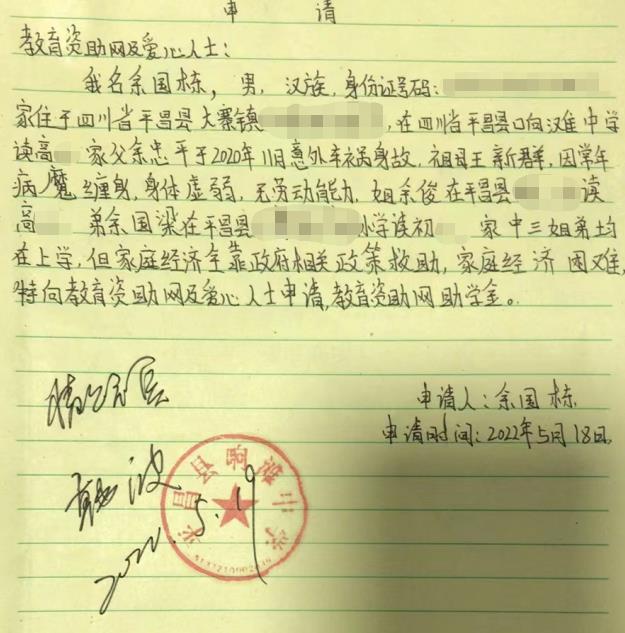 申 请
教育资助网及爱心人士：
我名余国栋，男，汉族，身份证号码：
家住于四川省平昌县大寨镇，在四川省平昌县响滩中学
读高 家父余忠平于2020年11日意外车祸身故，祖母王新群，因常年
病魔缠身，身体虚弱，无劳动能力，姐余俊在平昌县读
高 弟余国梁在平昌县小学读初 家中三姐弟均
在上学，但家庭经济全靠政府相关政策救助，家庭经济困难，
特向教育资助网及爱心人士申请，教育资助网助学金。
申请人：余国栋
申请时间：2022年5月18日
情况属实
平昌县响滩中学
2022.5.19